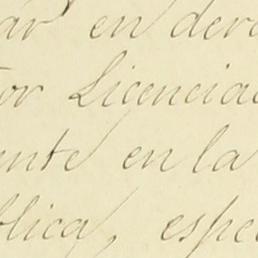 ar en dere
or Licencia
ente en la
blica, espe